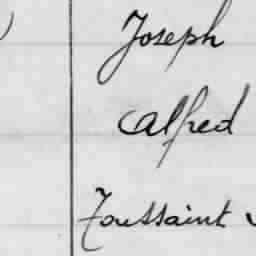 Joseph
Alfred
Toussaint